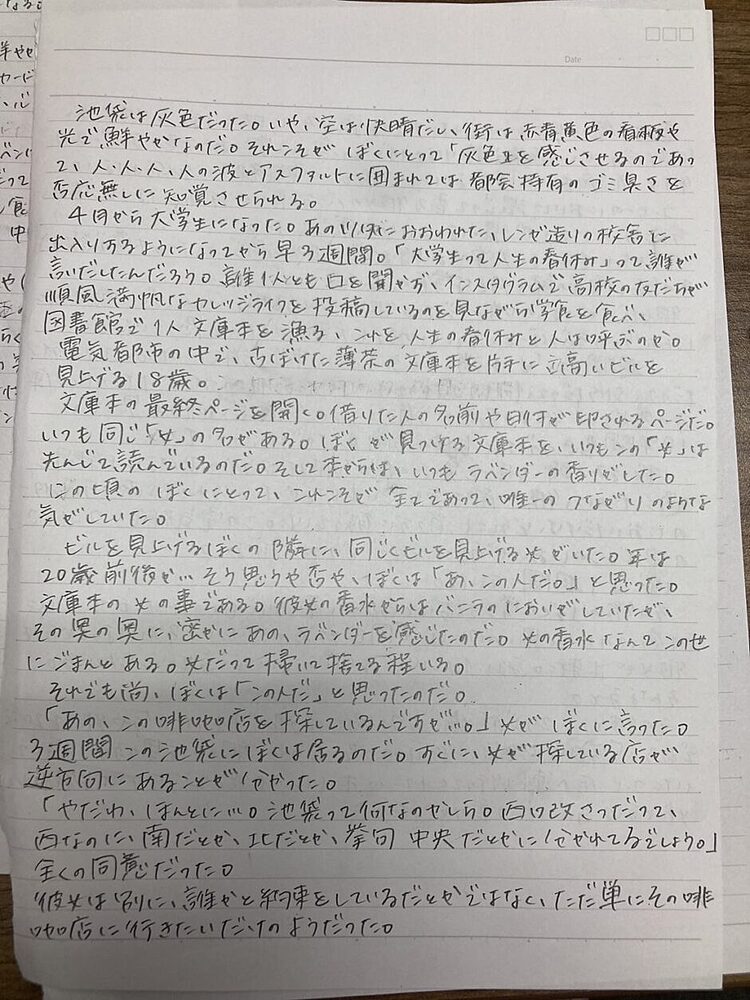 Date
池袋は灰色だった。いや、空は快晴だし、街は赤青黄色の看板や
光で鮮やかなのだ。それこそがぼくにとって「灰色」を感じさせるのであっ
て、人・人・人、人の波とアスファルトに囲まれては都会特有のゴミ臭さを
否応無しに知覚させられる。
4月から大学生になった。あのツタにおおわれた、レンガ造りの校舎に
出入りするようになってから早3週間。「大学生って人生の春休み」って誰が
言いだしたんだろう。誰1人とも口を開かず、インスタグラムで高校の友だちが
順風満帆なカレッジライフを投稿しているのを見ながら学食を食べ、
図書館で1人文庫本を漁る、これを人生の春休みと人は呼ぶのか。
電気都市の中で、古ぼけた薄茶の文庫本を片手に立高いビルを
見上げる18歳。
文庫本の最終ページを開く。借りた人の名前や日付が印されるページだ。
いつも同じ「女」の名がある。ぼくが見つける文庫本を、いつもこの「女」は
先んじて読んでいるのだ。そして本からは、いつもラベンダーの香りがした。
この頃のぼくにとって、これこそが全てであって、唯一のつながりのような
気がしていた。
ビルを見上げるぼくの隣に、同じくビルを見上げる女がいた。年は
20歳前後か…そう思うや否や、ぼくは「あ、この人だ。」と思った。
文庫本の女の事である。彼女の香水からはバニラのにおいがしていたが、
その奥の奥に、密かにあの、ラベンダーを感じたのだ。女の香水なんてこの世
にごまんとある。女だって掃いて捨てる程いる。
それでも尚、ぼくは「この人だ」と思ったのだ。
「あの、この珈琲店を探しているんですが…。」女がぼくに言った。
3週間この池袋にぼくは居るのだ。すぐに、女が探している店が
逆方向にあることが分かった。
「やだわ、ほんとに…。池袋って何なのかしら。西口改さつだって、
西なのに、南だとか、北だとか、挙句中央だとかに分かれてるでしょう。」
全くの同意だった。
彼女は別に、誰かと約束をしているだとかではなく、ただ単にその珈
琲店に行きたいだけのようだった。